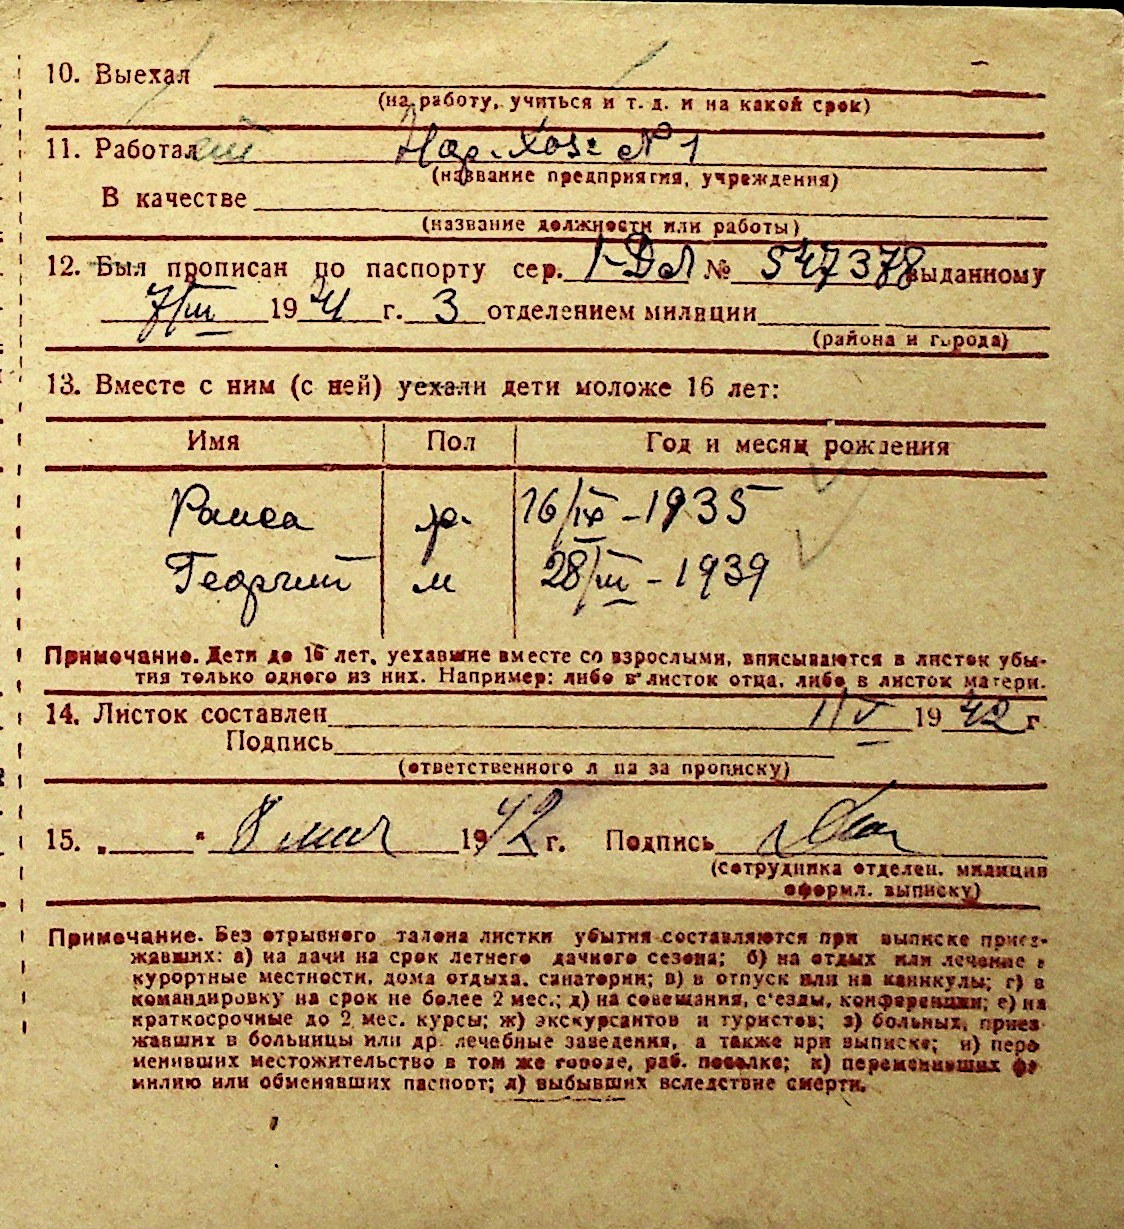 10. Выехал
(на работу, учиться и т. д. и на какой срок)
11. Работал Нар. Хоз. № 1
(название предприятия, учреждения)
В качестве
(название должности или работы)
12. Был прописан по паспорту сер. I-ДЛ № 547378 выданному
7/III 1941 г. 3 отделением милиции
(района и города)
13. Вместе с ним (с ней) уехали дети моложе 16 лет:
Имя Пол Год и месяц рождения
Раиса 16/IX - 1935
Георгий м 28/III - 1939
Примечание. Дети до 16 лет, уехавшие вместе со взрослыми, вписываются в листок убы-
тия только одного из них. Например: либо в листок отца, либо в листок матери.
14. Листок составлен 11/V 1942 г.
Подпись
(ответственного лица за прописку)
15. „ “ 8 мая 1942 г. Подпись
(сотрудника отделен. милиции
оформл. выписку)
Примечание. Без отрывного талона листки убытия составляются при выписке приез-
жавших: а) на дачи на срок летнего дачного сезона; б) на отдых или лечение в
курортные местности, дома отдыха, санатории; в) в отпуск или на каникулы; г) в
командировку на срок не более 2 мес.; д) на совещания, с'езды, конференции; е) на
краткосрочные до 2 мес. курсы; ж) экскурсантов и туристов; з) больных, приез-
жавших в больницы или др. лечебные заведения, а также при выписке; и) пере-
менивших местожительство в том же городе, раб. поселке; к) переменивших фа-
милию или обменявших паспорт; л) выбывших вследствие смерти.